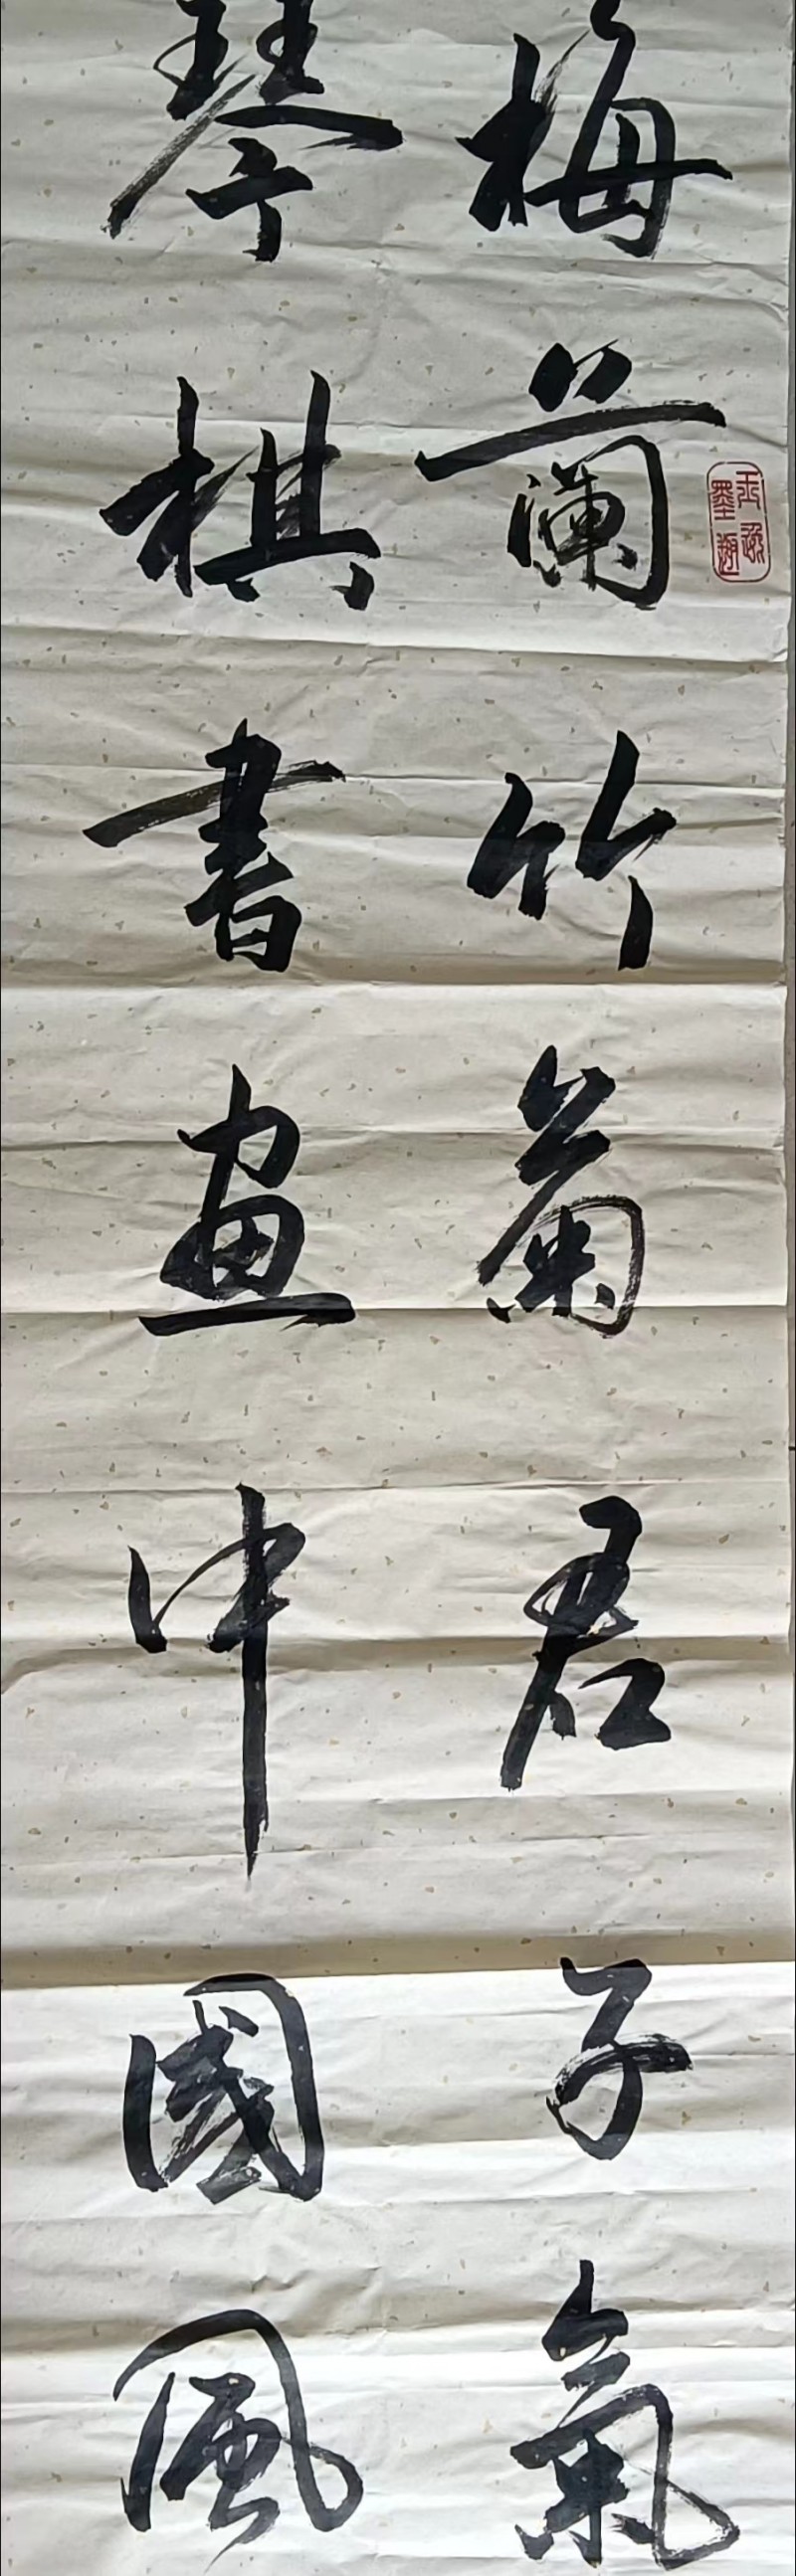 梅蘭竹菊君子氣
琴棋書画中國風